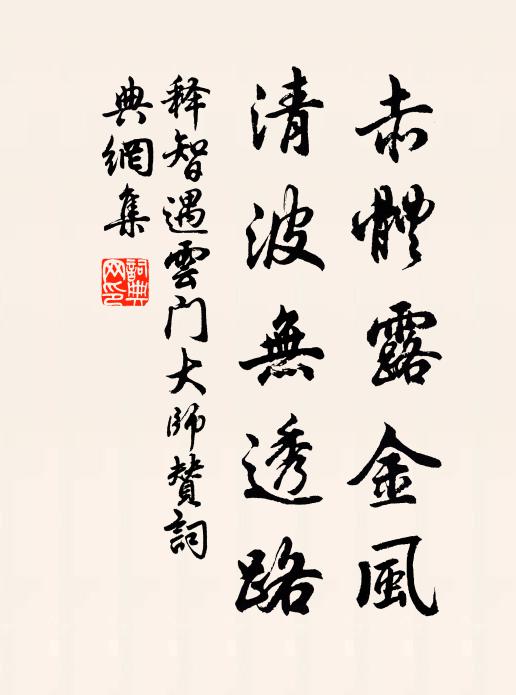 赤體露金風
清波無透路
释智遇雲门大师赞詞
典網集
詞典網印